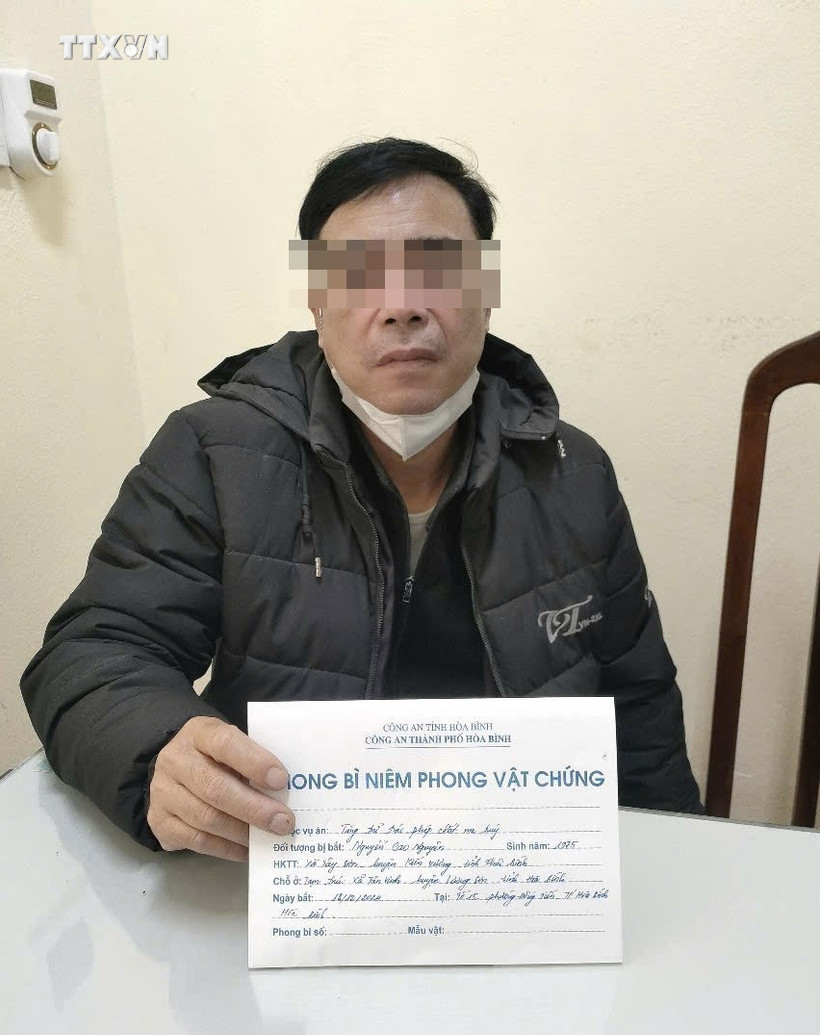 TTXVN
VT
CÔNG AN TỈNH HÒA BÌNH
CÔNG AN THÀNH PHỐ HÒA BÌNH
HONG BÌ NIÊM PHONG VẬT CHỨNG
ộc vụ án: Tàng trữ trái phép chất ma túy
Đối tượng bị bắt: Nguyễn Cao Nguyên Sinh năm: 1975
HKTT: Xã Tây Sơn huyện Kiến Xương tỉnh Thái Bình
Chỗ ở: Tạm trú: Xã Tân Vinh huyện Lương Sơn tỉnh Hòa Bình
Ngày bắt: 16/12/2024 Tại: Tổ 15 phường Đồng Tiến, TP Hòa Bình
Hòa Bình
Phong bì số: Mẫu vật: